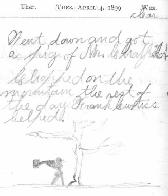 Ther. Tues. April 4, 1899 Wea.
clear
Went down and got
a jug of
Chopped on the
mountain the rest of
the day Frank
helped